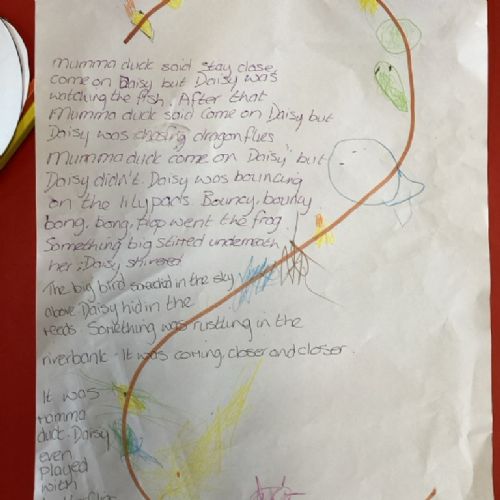 Mumma duck said stay close
come on Daisy but Daisy was
watching the fish. After that
Mumma duck said come on Daisy but
Daisy was chasing dragonflies
Mumma duck come on Daisy" but
Daisy didn't. Daisy was bouncing
on the lilypads. Bouncy, bouncy
bong, bong, plop went the frog.
Something big stirred underneath
her, Daisy shivered
The big bird swooped in the sky
above Daisy hid in the
reeds. Something was rustling in the
riverbank. It was coming closer and closer.
It was
mamma
duck. Daisy
even
played
with